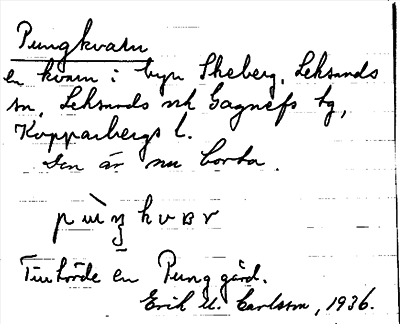 Pungkvarn
en kvarn i byn Skeberg, Leksands
sn, Leksands och Gagnefs tg,
Kopparbergs l.
Den är nu borta.
Tillhörde en Punggård.
Erik O. Carlsson, 1936.